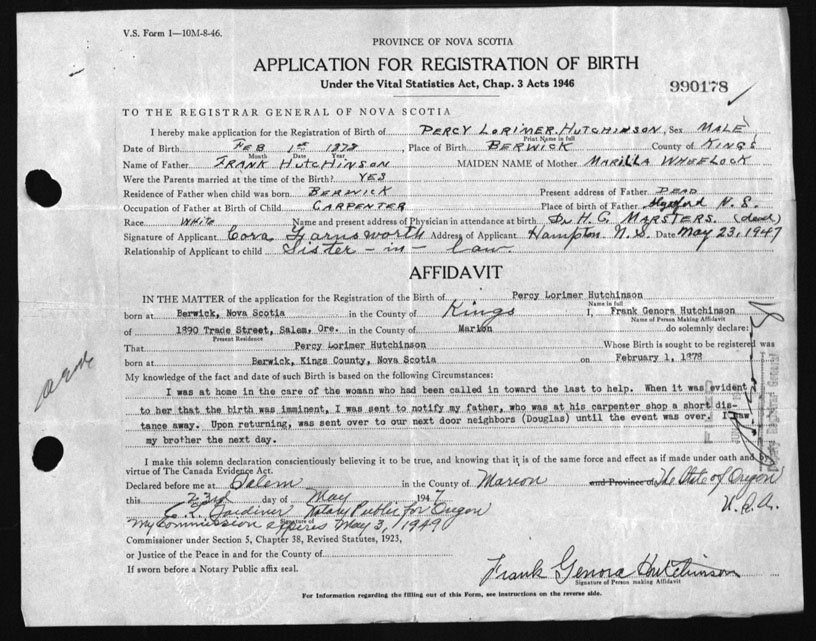 V.S. Form 1—10M-8-46.
PROVINCE OF NOVA SCOTIA
APPLICATION FOR REGISTRATION OF BIRTH
Under the Vital Statistics Act, Chap. 3 Acts 1946
990178
TO THE REGISTRAR GENERAL OF NOVA SCOTIA
I hereby make application for the Registration of Birth of PERCY LORIMER HUTCHINSON, Sex MALE
Print Name in full
Date of Birth FEB 1st 1878, Place of Birth BERWICK County of KINGS
Month Date Year
Name of Father FRANK HUTCHINSON MAIDEN NAME of Mother MARILLA WHEELOCK
Were the Parents married at the time of the Birth? YES
Residence of Father when child was born BERWICK Present address of Father DEAD
Occupation of Father at Birth of Child CARPENTER Place of birth of Father N.S.
Race White Name and present address of Physician in attendance at birth DR H.C. MARSTERS. (dead)
Signature of Applicant Cora Farnsworth Address of Applicant Hampton N.S. Date May 23, 1947
Relationship of Applicant to child Sister-in-law.
AFFIDAVIT
IN THE MATTER of the application for the Registration of the Birth of Percy Lorimer Hutchinson
Name in full
born at Berwick, Nova Scotia in the County of Kings I, Frank Genora Hutchinson
Name of Person Making Affidavit
of 1890 Trade Street, Salem, Ore. in the County of Marion do solemnly declare:
Present Residence
That Percy Lorimer Hutchinson Whose Birth is sought to be registered was
born at Berwick, Kings County, Nova Scotia on February 1, 1878
My knowledge of the fact and date of such Birth is based on the following Circumstances:
I was at home in the care of the woman who had been called in toward the last to help. When it was evident
to her that the birth was imminent, I was sent to notify my father, who was at his carpenter shop a short dis-
tance away. Upon returning, was sent over to our next door neighbors (Douglas) until the event was over. I saw
my brother the next day.
I make this solemn declaration conscientiously believing it to be true, and knowing that it is of the same force and effect as if made under oath and by
virtue of The Canada Evidence Act.
Declared before me at Salem in the County of Marion and Province of The State of Oregon
this 23rd day of May 1947 U.S.A.
C. L. Gardiner Notary Public for Oregon
My Commission expires May 3, 1949
Signature of
Commissioner under Section 5, Chapter 38, Revised Statutes, 1923,
or Justice of the Peace in and for the County of
If sworn before a Notary Public affix seal.
Frank Genora Hutchinson
Signature of Person making Affidavit
For Information regarding the filling out of this Form, see instructions on the reverse side.